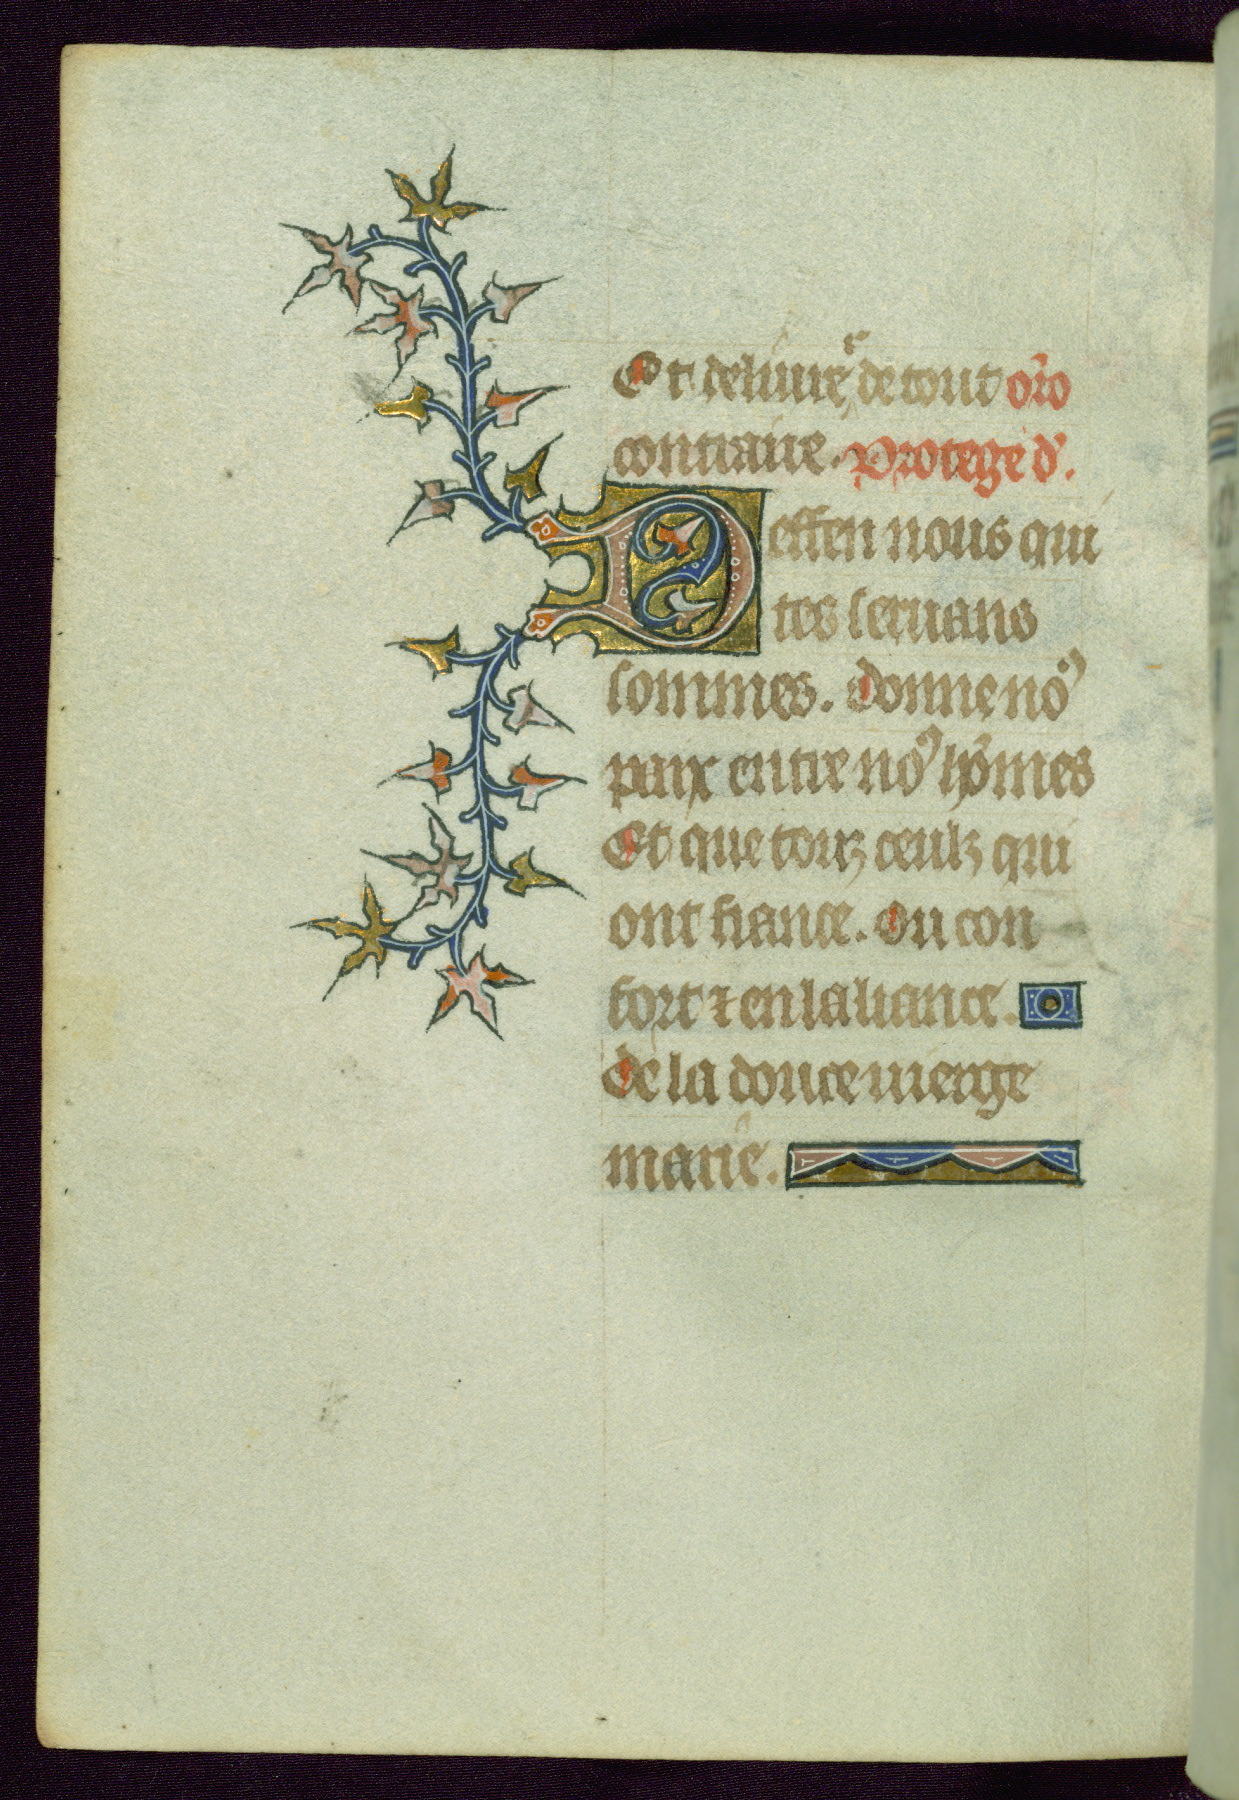 Et deliure de tout or̄o
contraire. Protege d'.
Deffen nous qui
tes seruans
sommes. donne no9
paix entre no9 hōmes
Et que touz ceulz qui
ont fiance. Ou con
fort ⁊ en laliance.
de la douce uierge
marie.